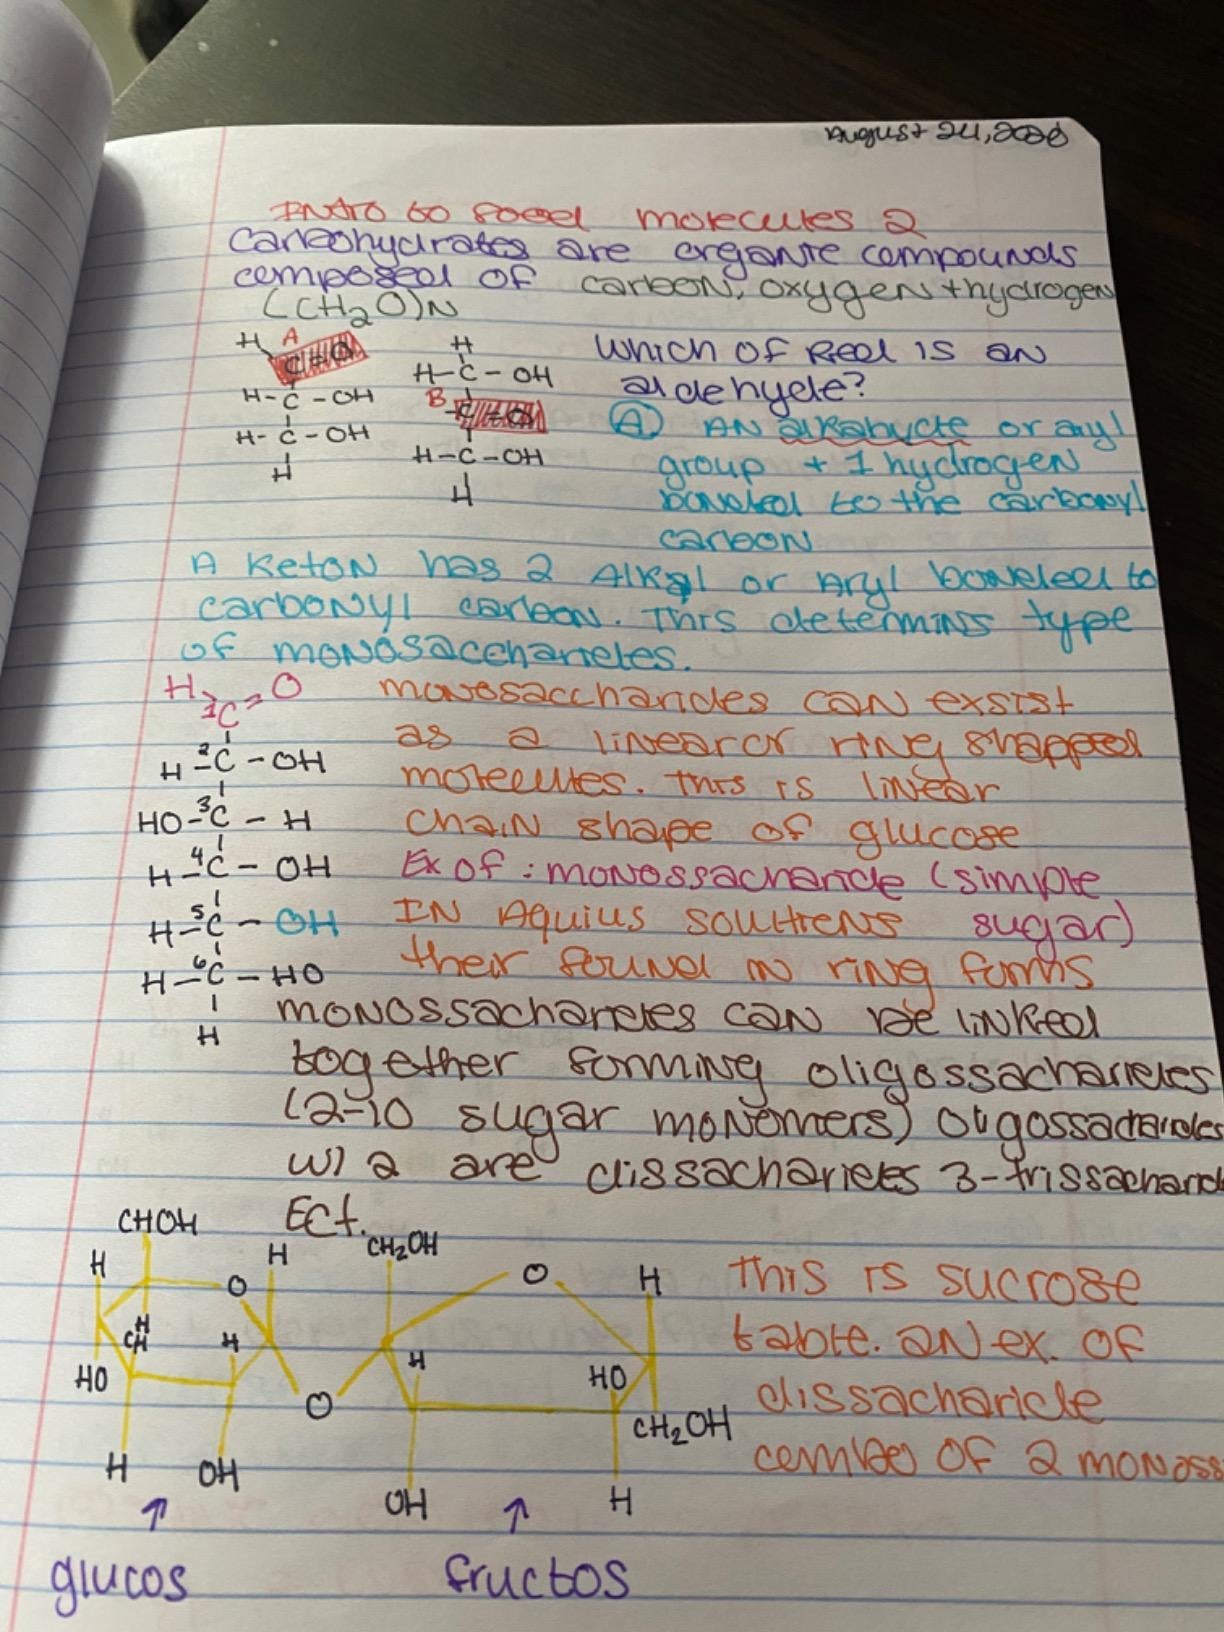 August 24, 2020
Intro to food molecules 2
Carbohydrates are organic compounds
composed of carbon, oxygen + hydrogen
(CH2O)N
H A
C=O
H-C-OH
H-C-OH
H
H
H-C-OH
B -C=O
H-C-OH
H
Which of Red is an
aldehyde?
(A) AN or aryl
group + 1 hydrogen
bonded to the carbonyl
carbon
A Keton has 2 Alkyl or Aryl bonded to
carbonyl carbon. This determins type
of monosaccharides.
H 1C=O
H-2C-OH
HO-3C-H
H-4C-OH
H-5C-OH
H-6C-HO
H
monosaccharides can exsist
as a linear or ring shapped
molecules. This is linear
chain shape of glucose
Ex of: monossacharide (simple
sugar)
IN Aquius solutions
their found in ring forms
monossacharides can be linked
together forming oligossacharides
(2-10 sugar monomers) oligossacharides
w/ 2 are dissacharides 3-trissacharid
Ect.
CHOH H CH2OH
H O O H
H
CH H H HO
HO O CH2OH
H OH OH H
↑ ↑
glucos fructos
This is sucrose
table. an ex. of
dissacharide
combo of 2 monoss